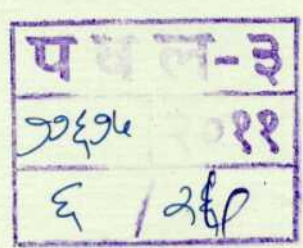 प व ल-३
११६१५ २०११
६ /